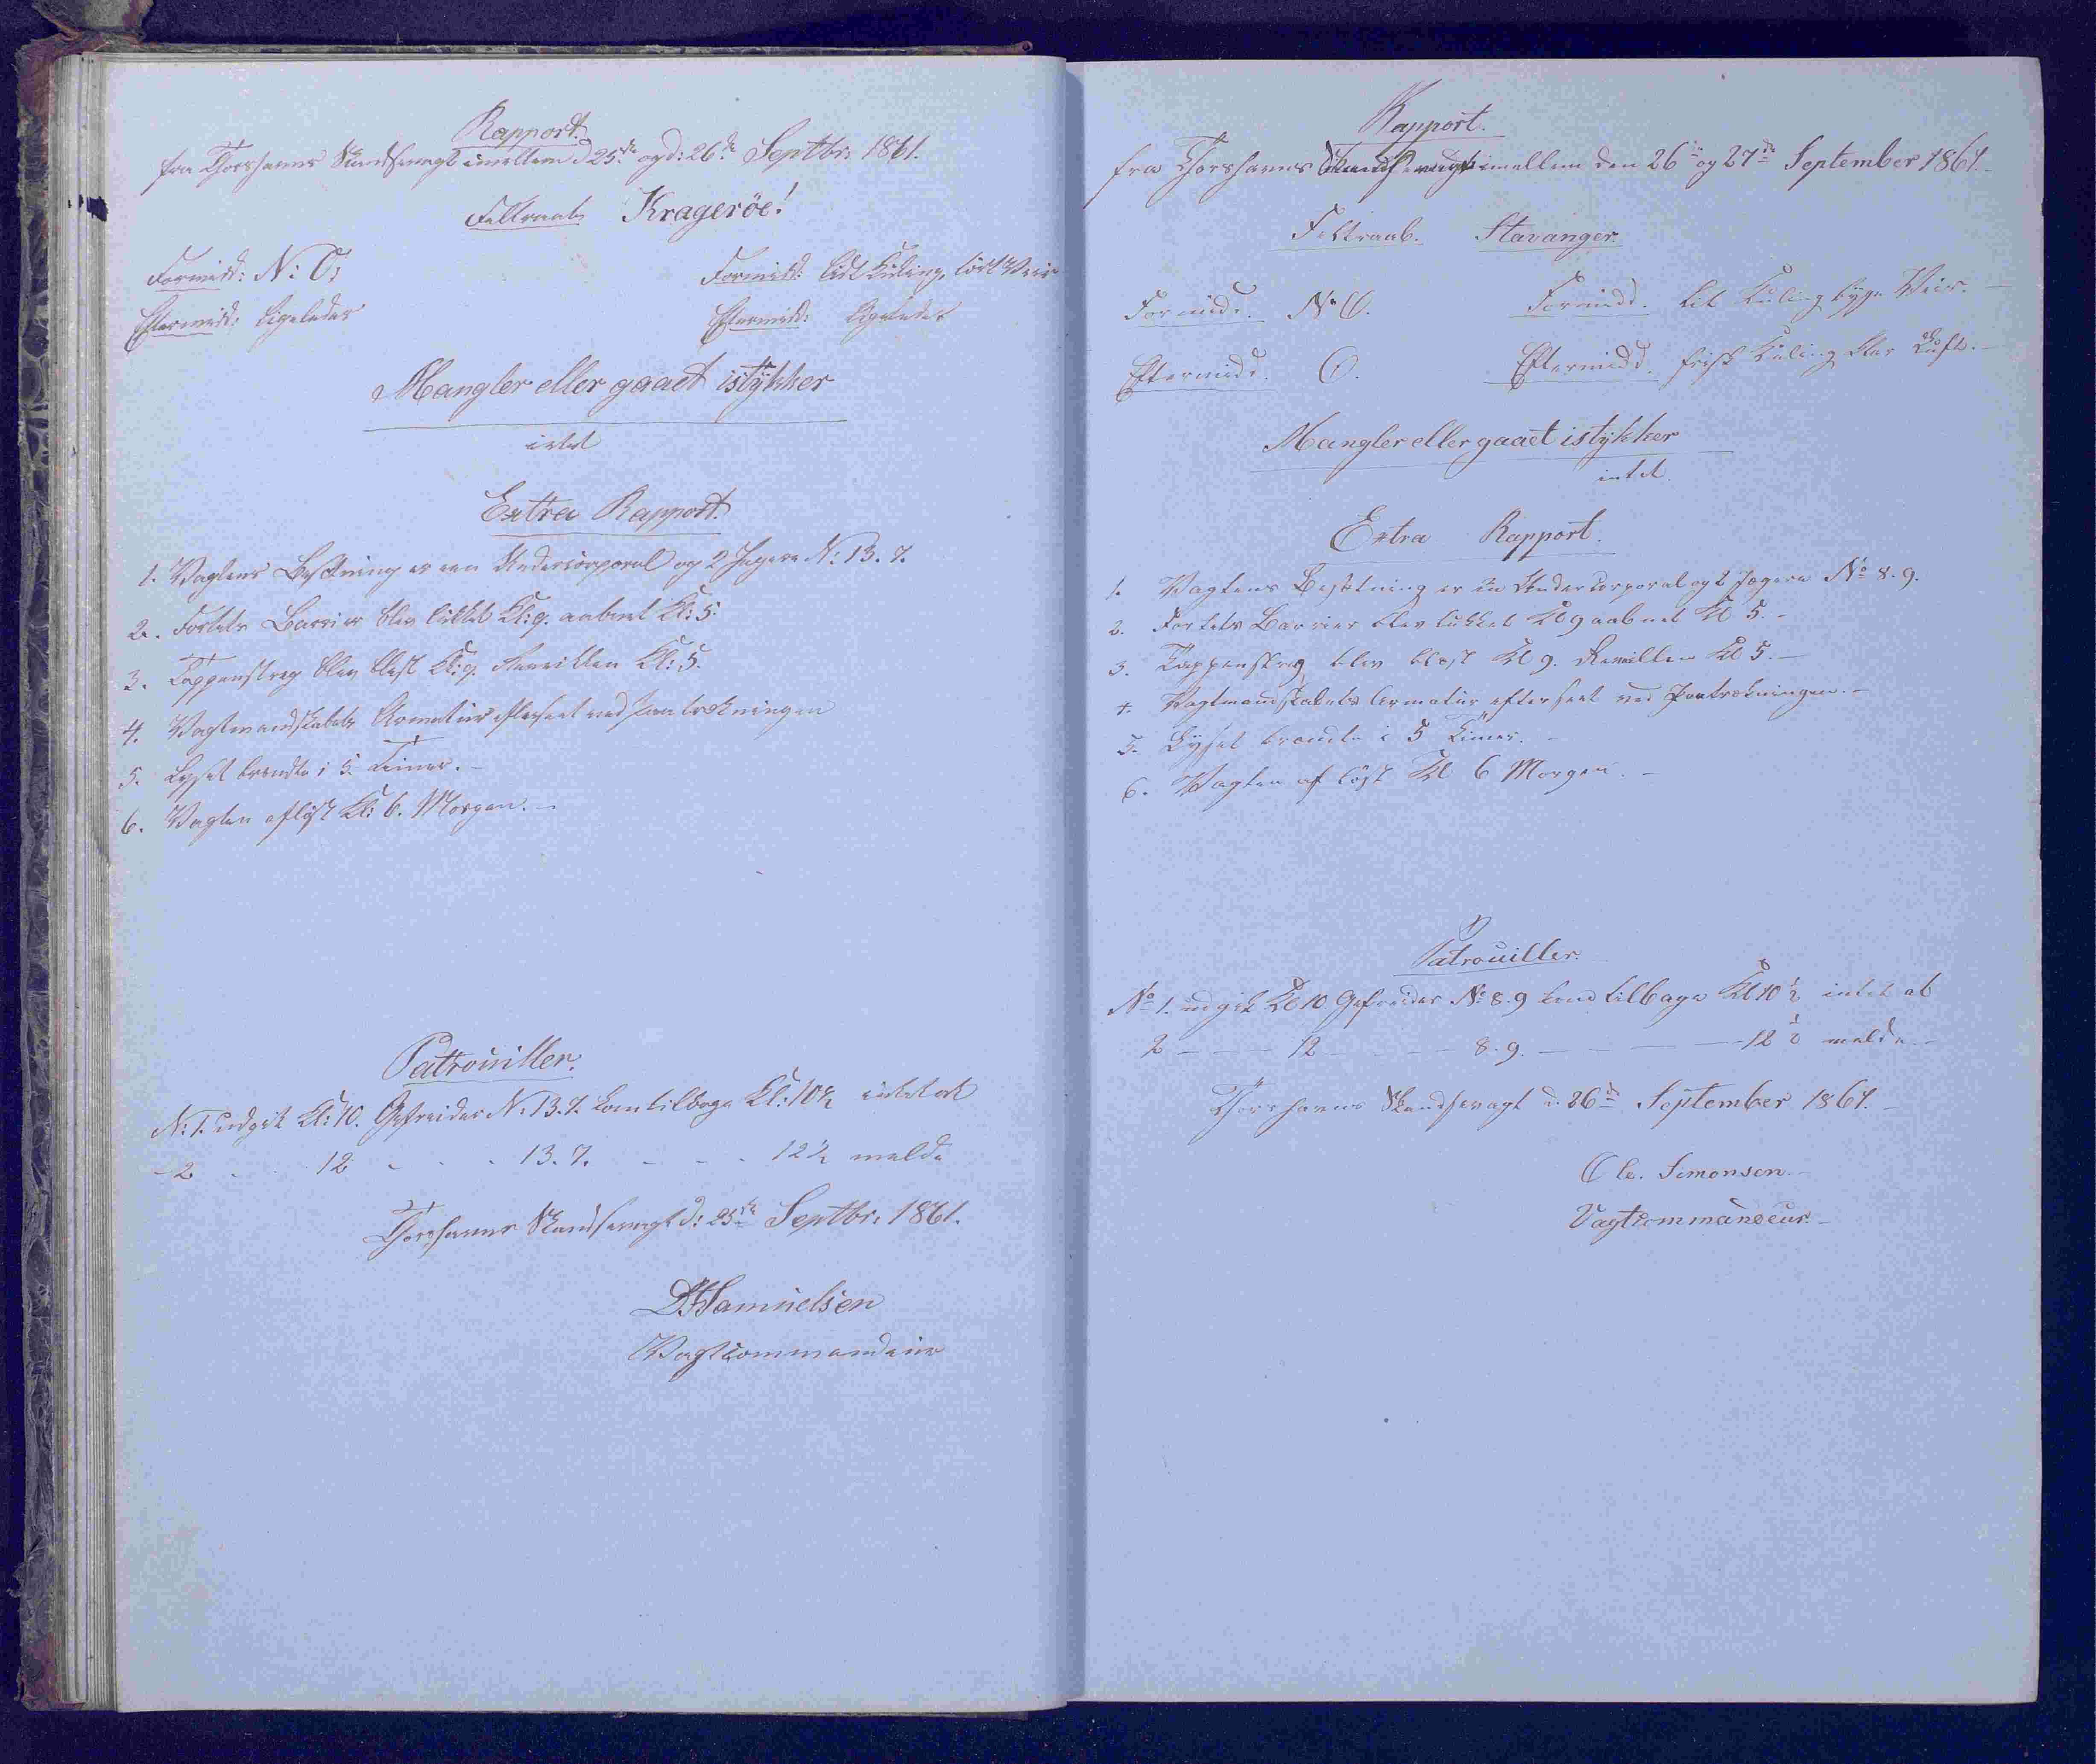 Rapport.
fra Thorshavns Skandsevagt imellem d 25de og d: 26de Septbr: 1861.
Feltraab Krageröe!
Formidd: N: O: Formidd: lidt Kuling, tört Veir
Eftermidd: ligeledes Eftermidd: ligeledes
Mangler eller gaaet istykker
intet
Extra Rapport.
1. Vagtens Besætning er een Undercorporal og 2 Jægere N: 13. 7.
2. Fortets Barrier blev lukket Kl: 9. aabnet Kl: 5.
3. Tappenstreg blev blæst Kl: 9. Reveillen Kl: 5.
4. Vagtmandskabets Armatur efterseet ved Paatrækningen
5. Lyset brændte i 5 Timer. -
6. Vagten aflöst Kl: 6. Morgen. -
Pattrouiller.
N: 1. udgik Kl: 10. Gefreider N: 13. 7. kom tilbage Kl: 10½ intet at
- 2 - - 12 - - - 13. 7. - - - 12½ melde
Thorshavns Skandsevagt d: 25de Septbr: 1861.
Samuelsen
Vagtcommandeur
Rapport.
fra Thorshavns Skandsevagt imellem den 26de og 27de September 1861.
Feltraab. Stavanger.
Formidd. N.O. Formidd. lit Kuling byge Veir. -
Eftermidd. O. Eftermidd. frisk Kuling klar Luft. -
Mangler eller gaaet istykker
intet.
Extra Rapport.
1. Vagtens Besætning er en Undercorporal og 2 Jægere No 8. 9.
2. Fortets Barrier blev lukket Kl 9 aabnet Kl 5. -
3. Tappenstreg blev blæst Kl 9. Reveillen Kl 5. -
4. Vagtmandskabets Armatur efterseet ved Paatrækningen. -
5. Lyset brændte i 5 Timer. -
6. Vagten af löst Kl 6 Morgen. -
Patrouiller.
No 1. udgik Kl 10. Gefreider No 8. 9 kom tilbage Kl 10½ intet at
2 - - - 12 - - - - 8. 9. - - - - - 12½ melde. -
Thorshavns Skandsevagt d. 26de September 1861. -
Ole. Simonsen. -
Vagtcommandeur. -